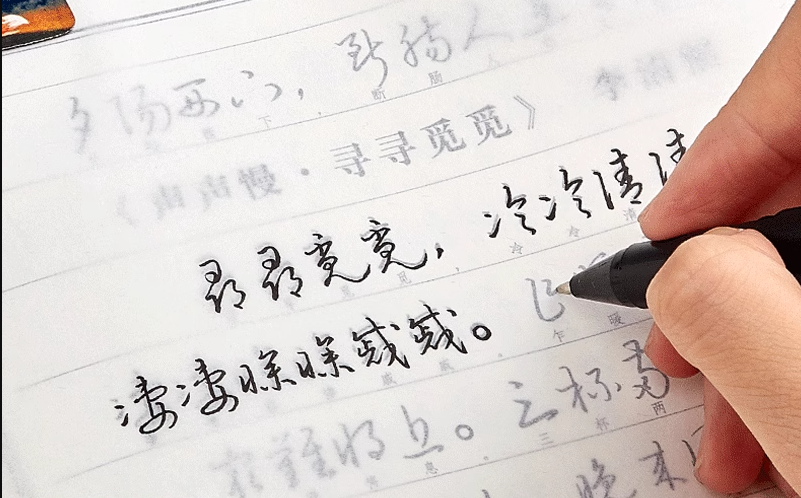 夕阳西下，断肠人
《声声慢·寻寻觅觅》 李清照
尋尋覓覓，冷冷清清
凄凄惨惨戚戚。乍
乍 暖
最難将息。三杯两
三 杯 两
晚来